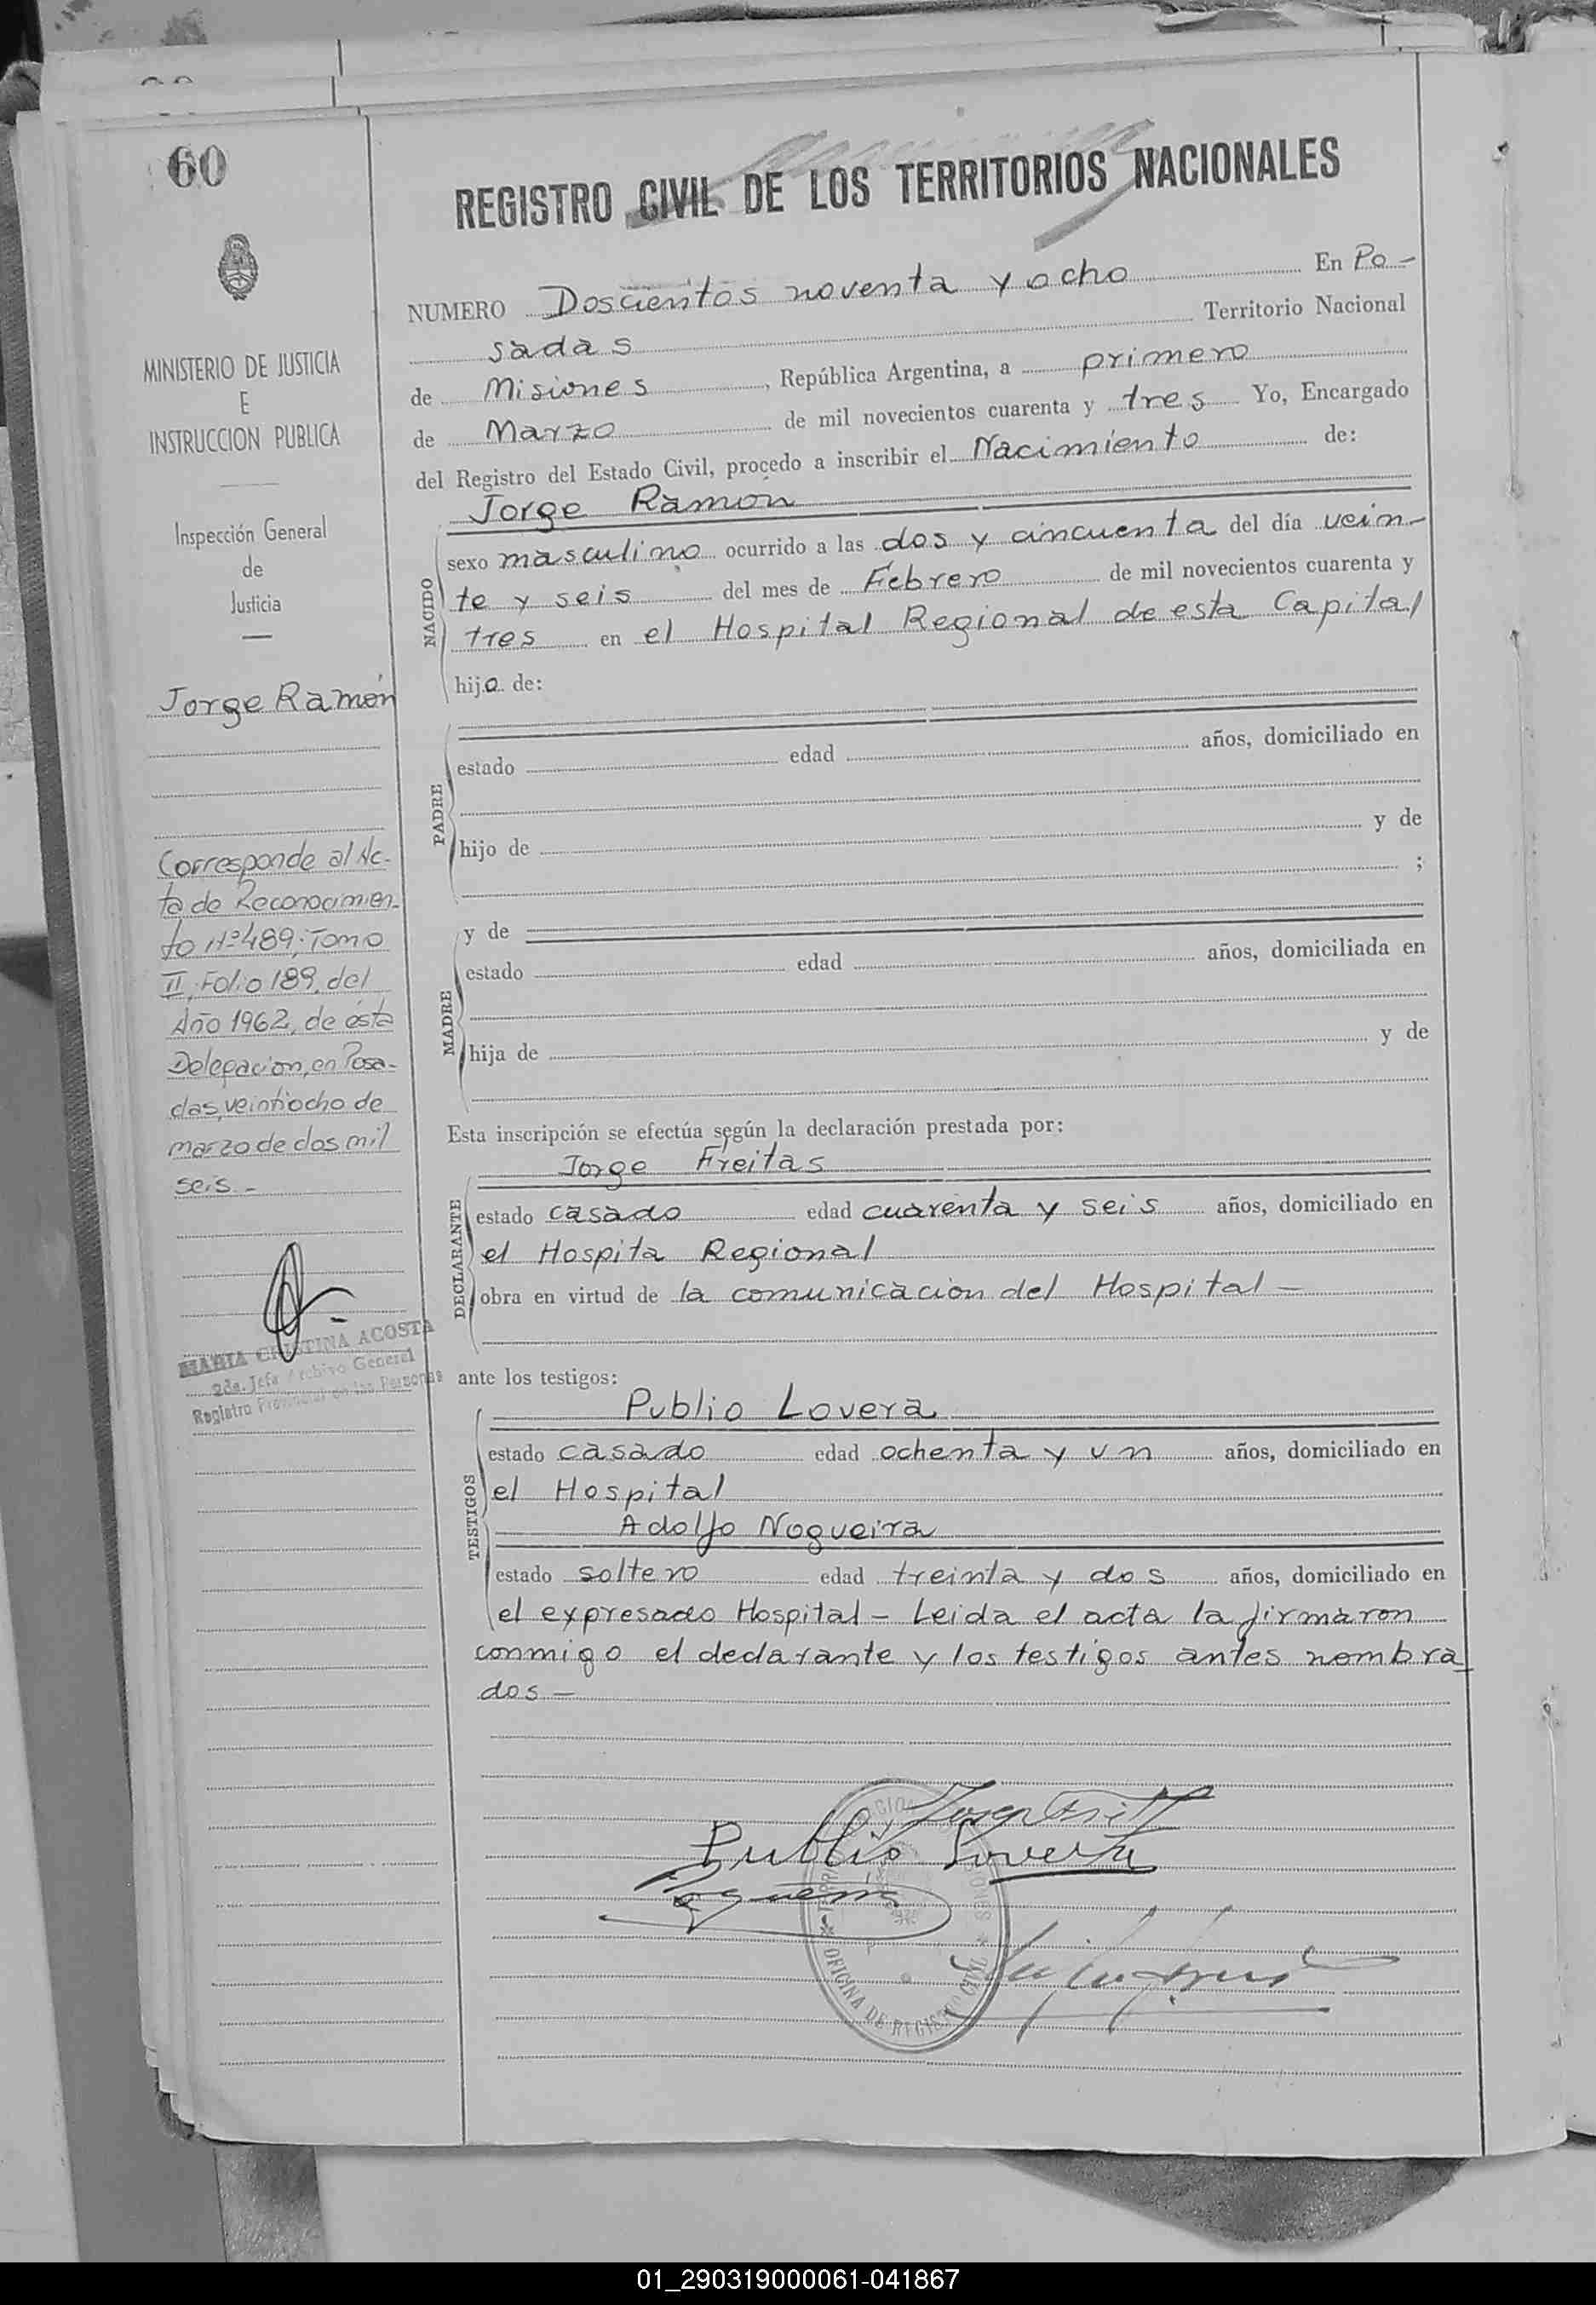 60
REGISTRO CIVIL DE LOS TERRITORIOS NACIONALES
NUMERO Doscientos noventa y ocho En Po-
sadas Territorio Nacional
de Misiones, República Argentina, a primero
de Marzo de mil novecientos cuarenta y tres Yo, Encargado
del Registro del Estado Civil, procedo a inscribir el Nacimiento de:
Jorge Ramón
NACIDO
sexo masculino ocurrido a las dos y cincuenta del día vein-
te y seis del mes de Febrero de mil novecientos cuarenta y
tres en el Hospital Regional de esta Capital
hijo de:
PADRE
estado edad años, domiciliado en
hijo de y de
;
MADRE
y de
estado edad años, domiciliada en
hija de y de
Esta inscripción se efectúa según la declaración prestada por:
Jorge Freitas
DECLARANTE
estado casado edad cuarenta y seis años, domiciliado en
el Hospita Regional
obra en virtud de la comunicacion del Hospital -
ante los testigos:
Publio Lovera
TESTIGOS
estado casado edad ochenta y un años, domiciliado en
el Hospital
Adolfo Nogueira
estado soltero edad treinta y dos años, domiciliado en
el expresado Hospital - Leida el acta la firmaron
conmigo el declarante y los testigos antes nombra
dos -
Publio Lovera
OFICINA DE REGISTRO CIVIL
MINISTERIO DE JUSTICIA
E
INSTRUCCION PUBLICA
Inspección General
de
Justicia
Jorge Ramón
Corresponde al Ac-
ta de Reconocimien-
to Nº 489, Tomo
II, Folio 189, del
Año 1962, de ésta
Delegacion, en Posa-
das, veintiocho de
marzo de dos mil
seis -
MARIA CRISTINA ACOSTA
2da. Jefa Archivo General
Registro Provincial de las Personas
01_290319000061-041867